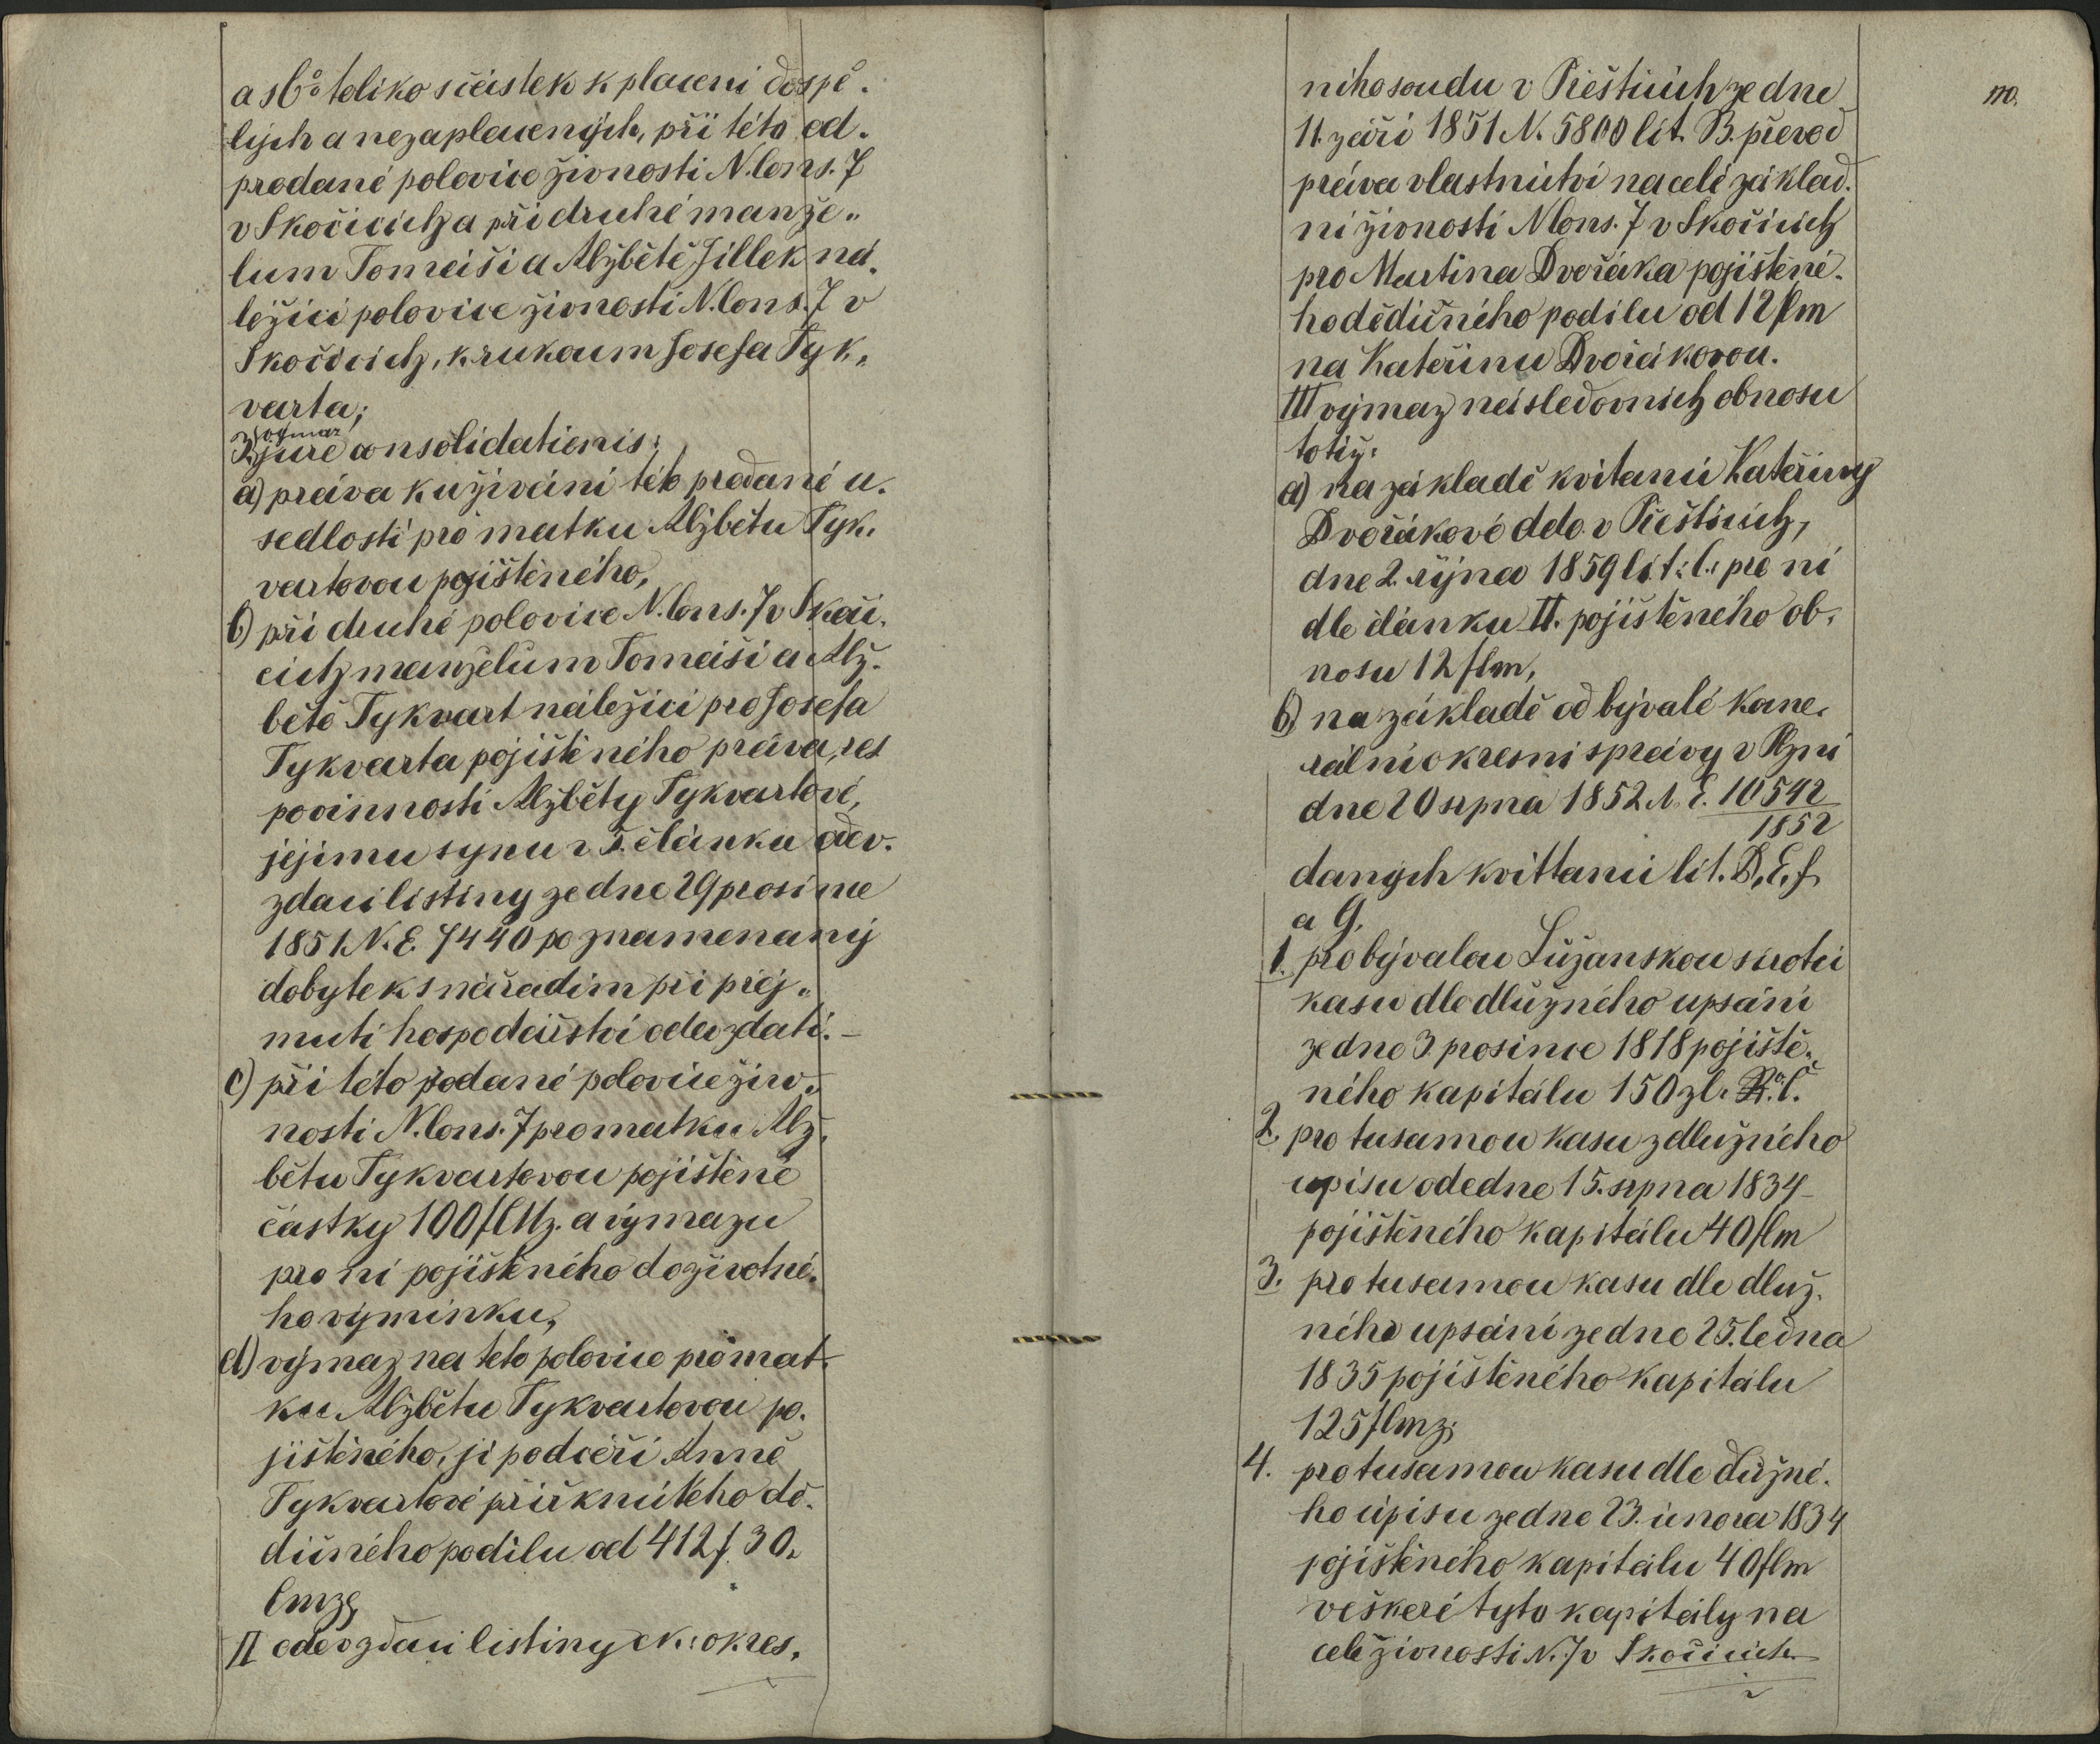 a sbº toliko sčástek k placení dospě-
lých a nezaplacených, při této od-
prodané polovice živnosti N. Cons. 7
v Skočicích a při druhé manže-
lum Tomáši a Alžbětě Jillek ná-
ležící polovice živnosti N. Cons. 7 v
Skočicích, k rukoum Josefa Tyk-
varta;
výmaz
I. jure consolidationis:
a) práva ku živání této prodané u-
sedlosti pro matku Alžbětu Tyk-
vartovou pojištěného,
b) při druhé polovice N. Cons. 7 v Skoči-
cích manželům Tomáši a Alž-
bětě Tykvart náležící pro Josefa
Tykvarta pojištěného práva, res
povinnosti Alžběty Tykvartové,
jejímu synu v 5. článku odev-
zdací listiny ze dne 29 prosince
1851. N. E. 7440 poznamenaný
dobytek s nářadím při přej-
mutí hospodářství odevzdati. –
c) při této prodané polovice živ-
nosti N. Cons. 7 pro matku Alž-
bětu Tykvartovou pojištěné
částky 100 fl Mz. a výmazu
pro ní pojištěného doživotné-
ho výminku,
d) výmaz na této polovice pro mat-
ku Alžbětu Tykvartovou po-
jištěného, jí po dceři Anně
Tykvartové přiřknutého dě-
dičného podílu od 412 f 30.
Cmze
II odevzdací listiny ck: okres-
ního soudu v Přešticích ze dne
11. září 1851 N. 5800 lit. B. převod
práva vlastnictví na celé základ-
ní živnosti N Cons. 7 v Skočicích
pro Martina Dvořáka pojištěné-
ho dědičného podílu od 12 flm
na Kateřinu Dvořákovou.
III výmaz následovních obnosu
totiž:
a) na základě kvitancí Kateřiny
Dvořákové ddo. v Přešticích,
dne 2. října 1859 lit: C. pro ní
dle článku II. pojištěného ob-
nosu 12 flm,
b) na základě od bývalé kame-
rální okresní správy v Plzni
dne 20 srpna 1852 N. E. 10542
1852
daných kvittancí lit. D, E, f
a G.
1. pro bývalou Lužanskou sirotčí
kasu dle dlužného upsání
ze dne 3. prosince 1818 pojiště-
ného kapitálu 150 zl. R. Č.
2. pro tusamou kasu z dlužného
upisu ode dne 15. srpna 1834
pojištěného kapitálu 40 flm
3. pro tusamou kasu dle dluž-
ného upsání ze dne 25. ledna
1835 pojištěného kapitálu
125 flmz;
4. pro tusamou kasu dle dlužné-
ho úpisu ze dne 23. února 1834
pojištěného kapitálu 40 flm
veškeré tyto kapitály na
celé živnosti N. 7 v Skočicích
110.